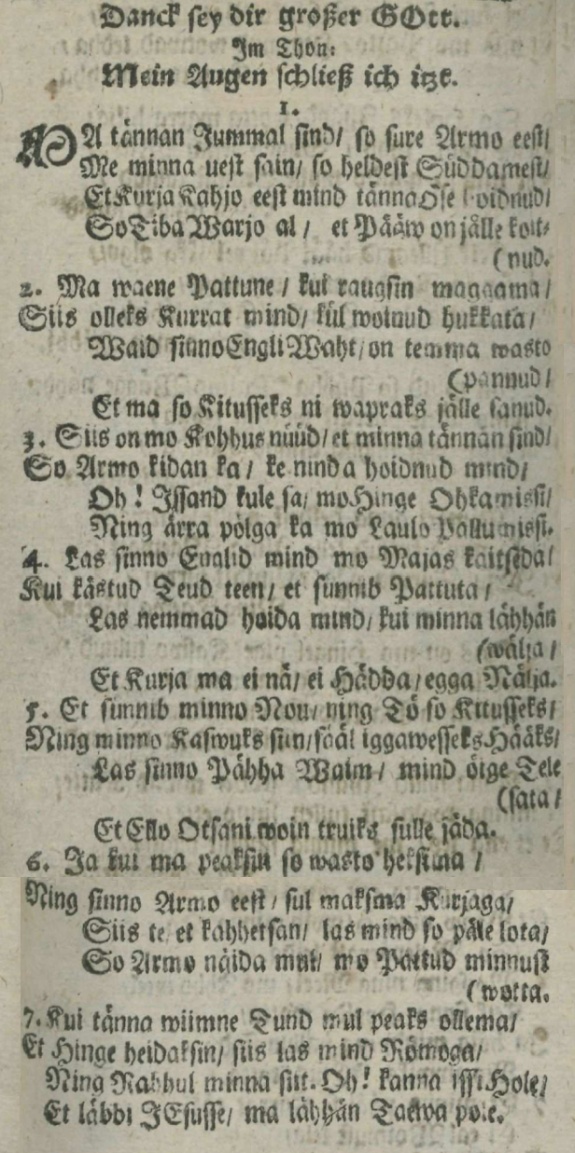 Danck sey dir großer GOtt.
Im Thon:
Mein Augen schließ ich itzt.
1.
MA tännan Jummal sind/ so sure Armo eest/
Me minna uest sain/ so heldest Süddamest/
Et Kurja Kahjo eest mind tänna Öse hoidnud/
So Tiba Warjo al / et Pääw on jälle koit-
(nud.
2. Ma waene Pattune / kui raugsin magaama/
Siis olleks Kurrat mind/ kül woinud hukkata/
Waid sinno Engli Waht/ on temma wasto
(pannud/
Et ma so Kitusseks ni wapraks jälle sanud.
3. Siis on mo Kohhus nüüd/ et minna tännan sind/
So Armo kidan ka/ ke ninda hoidnud mind/
Oh! Issand kule sa/ mo Hinge Ohkamissi/
Ning ärra pölga ka mo Laulo Pallumissi.
4. Las sinno Englid mind mo Majas kaitseda/
Kui kästud Teud teen/ et sunnib Pattuta/
Las nemmad hoida mind/ kui minna lähhän
(wälja/
Et Kurja ma ei nä/ ei Hädda/ egga Nälja.
5. Et sünnib minno Nou/ ning Tö so Kitusseks/
Ning minno Kaswuks siin/ sääl iggawesseks Hääks/
Las sinno Pähha Waim/ mind öige Tele
(sata/
Et Ello Otsani woin truiks sulle jäda.
6. Ja kui ma peaksin so wasto heksima /
Ning sinno Armo eest/ sul maksma Kurjaga/
Siis te et kahhetsan/ las mind so päle lota/
So Armo näida mul/ mo Pattud minnust
(wotta.
7. Kui tänna wiimne Tund mul peaks ollema/
Et Hinge heidaksin/ siis las mind Römoga/
Ning Rahhul minna siit. Oh! kanna issi Hole/
Et läbbi JEsusse/ ma lähhän Taewa pole.